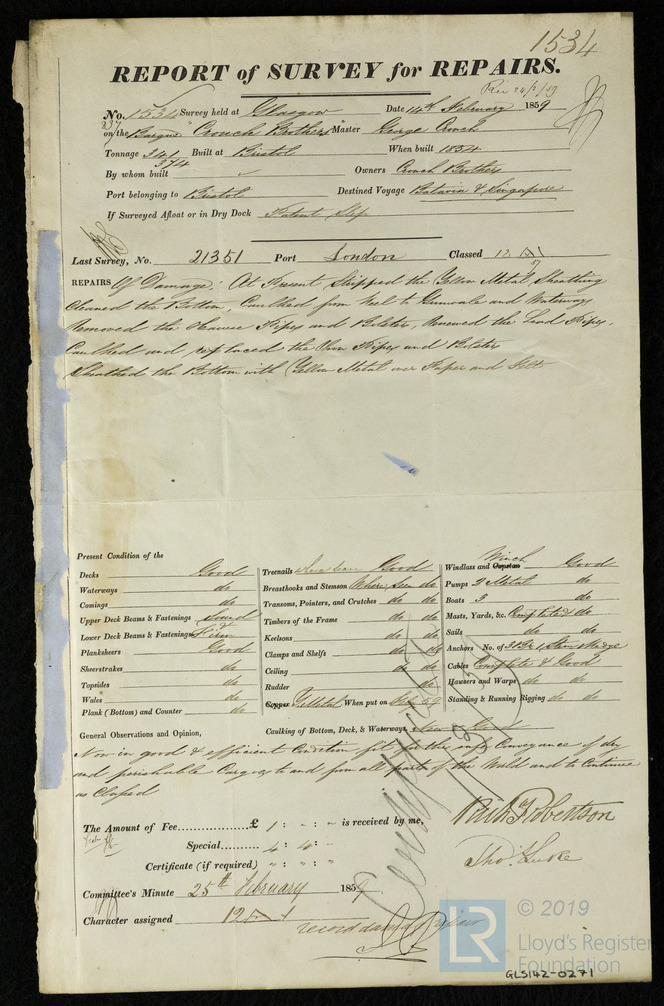 1534
REPORT of SURVEY for REPAIRS.
Rec 24/2/59
No. 1534 Survey held at Glasgow Date 14th February 1859
on the Barque "Crouch Brothers" Master George Crouch
237
Tonnage 341 Built at Bristol When built 1854
374
By whom built Owners Crouch Brothers
Port belonging to Bristol Destined Voyage Batavia & Singapore
If Surveyed Afloat or in Dry Dock Patent Slip
Last Survey, No. 21351 Port London Classed 12 A1
57
REPAIRS Of Damage: At Present Stripped the Yellow Metal Sheathing
Cleaned the Bottom, Caulked from keel to Gunwale and Waterways
Removed the Hawse Pipes and Bolster, Renewed the Lead Pipes,
Caulked and replaced the Iron Pipes and Bolster
Sheathed the Bottom with Yellow Metal over Paper and Felt
Present Condition of the
Decks Good
Waterways do
Comings do
Upper Deck Beams & Fastenings Sound
Lower Deck Beams & Fastenings & Firm
Plansheers Good
Sheerstrakes do
Topsides do
Wales do
Plank (Bottom) and Counter do
Treenails Good
Breasthooks and Stemson Where Seen do
Transoms, Pointers, and Crutches do do
Timbers of the Frame do do
Keelsons do do
Clamps and Shelfs do do
Ceiling do do
Rudder do do
Copper Y Metal When put on Feb 59
Caulking of Bottom, Deck, & Waterways Good
Winch
Windlass and Capstan Good
Pumps 2 Metal do
Boats 3 do
Masts, Yards, &c. Complete & do
Sails do do
Anchors No. of 3 Br 1 Stream 1 Kedge
Cables Complete & Good
Hawsers and Warps do do
Standing & Running Rigging do do
General Observations and Opinion,
Now in good & efficient Condition fit for the safe Conveyance of dry
and perishable Cargoes to and from all parts of the World and to Continue
as Classed
The Amount of Fee £ 1 : - : - is received by me,
Special 4 : 4 : -
Certificate (if required) " : " : "
Robertson
Thos. Luke
Committee's Minute 25th February 1859
Character assigned 12 A 1
record damage Repair
© 2019
LR
Lloyd's Register
Foundation
GLS142-0271